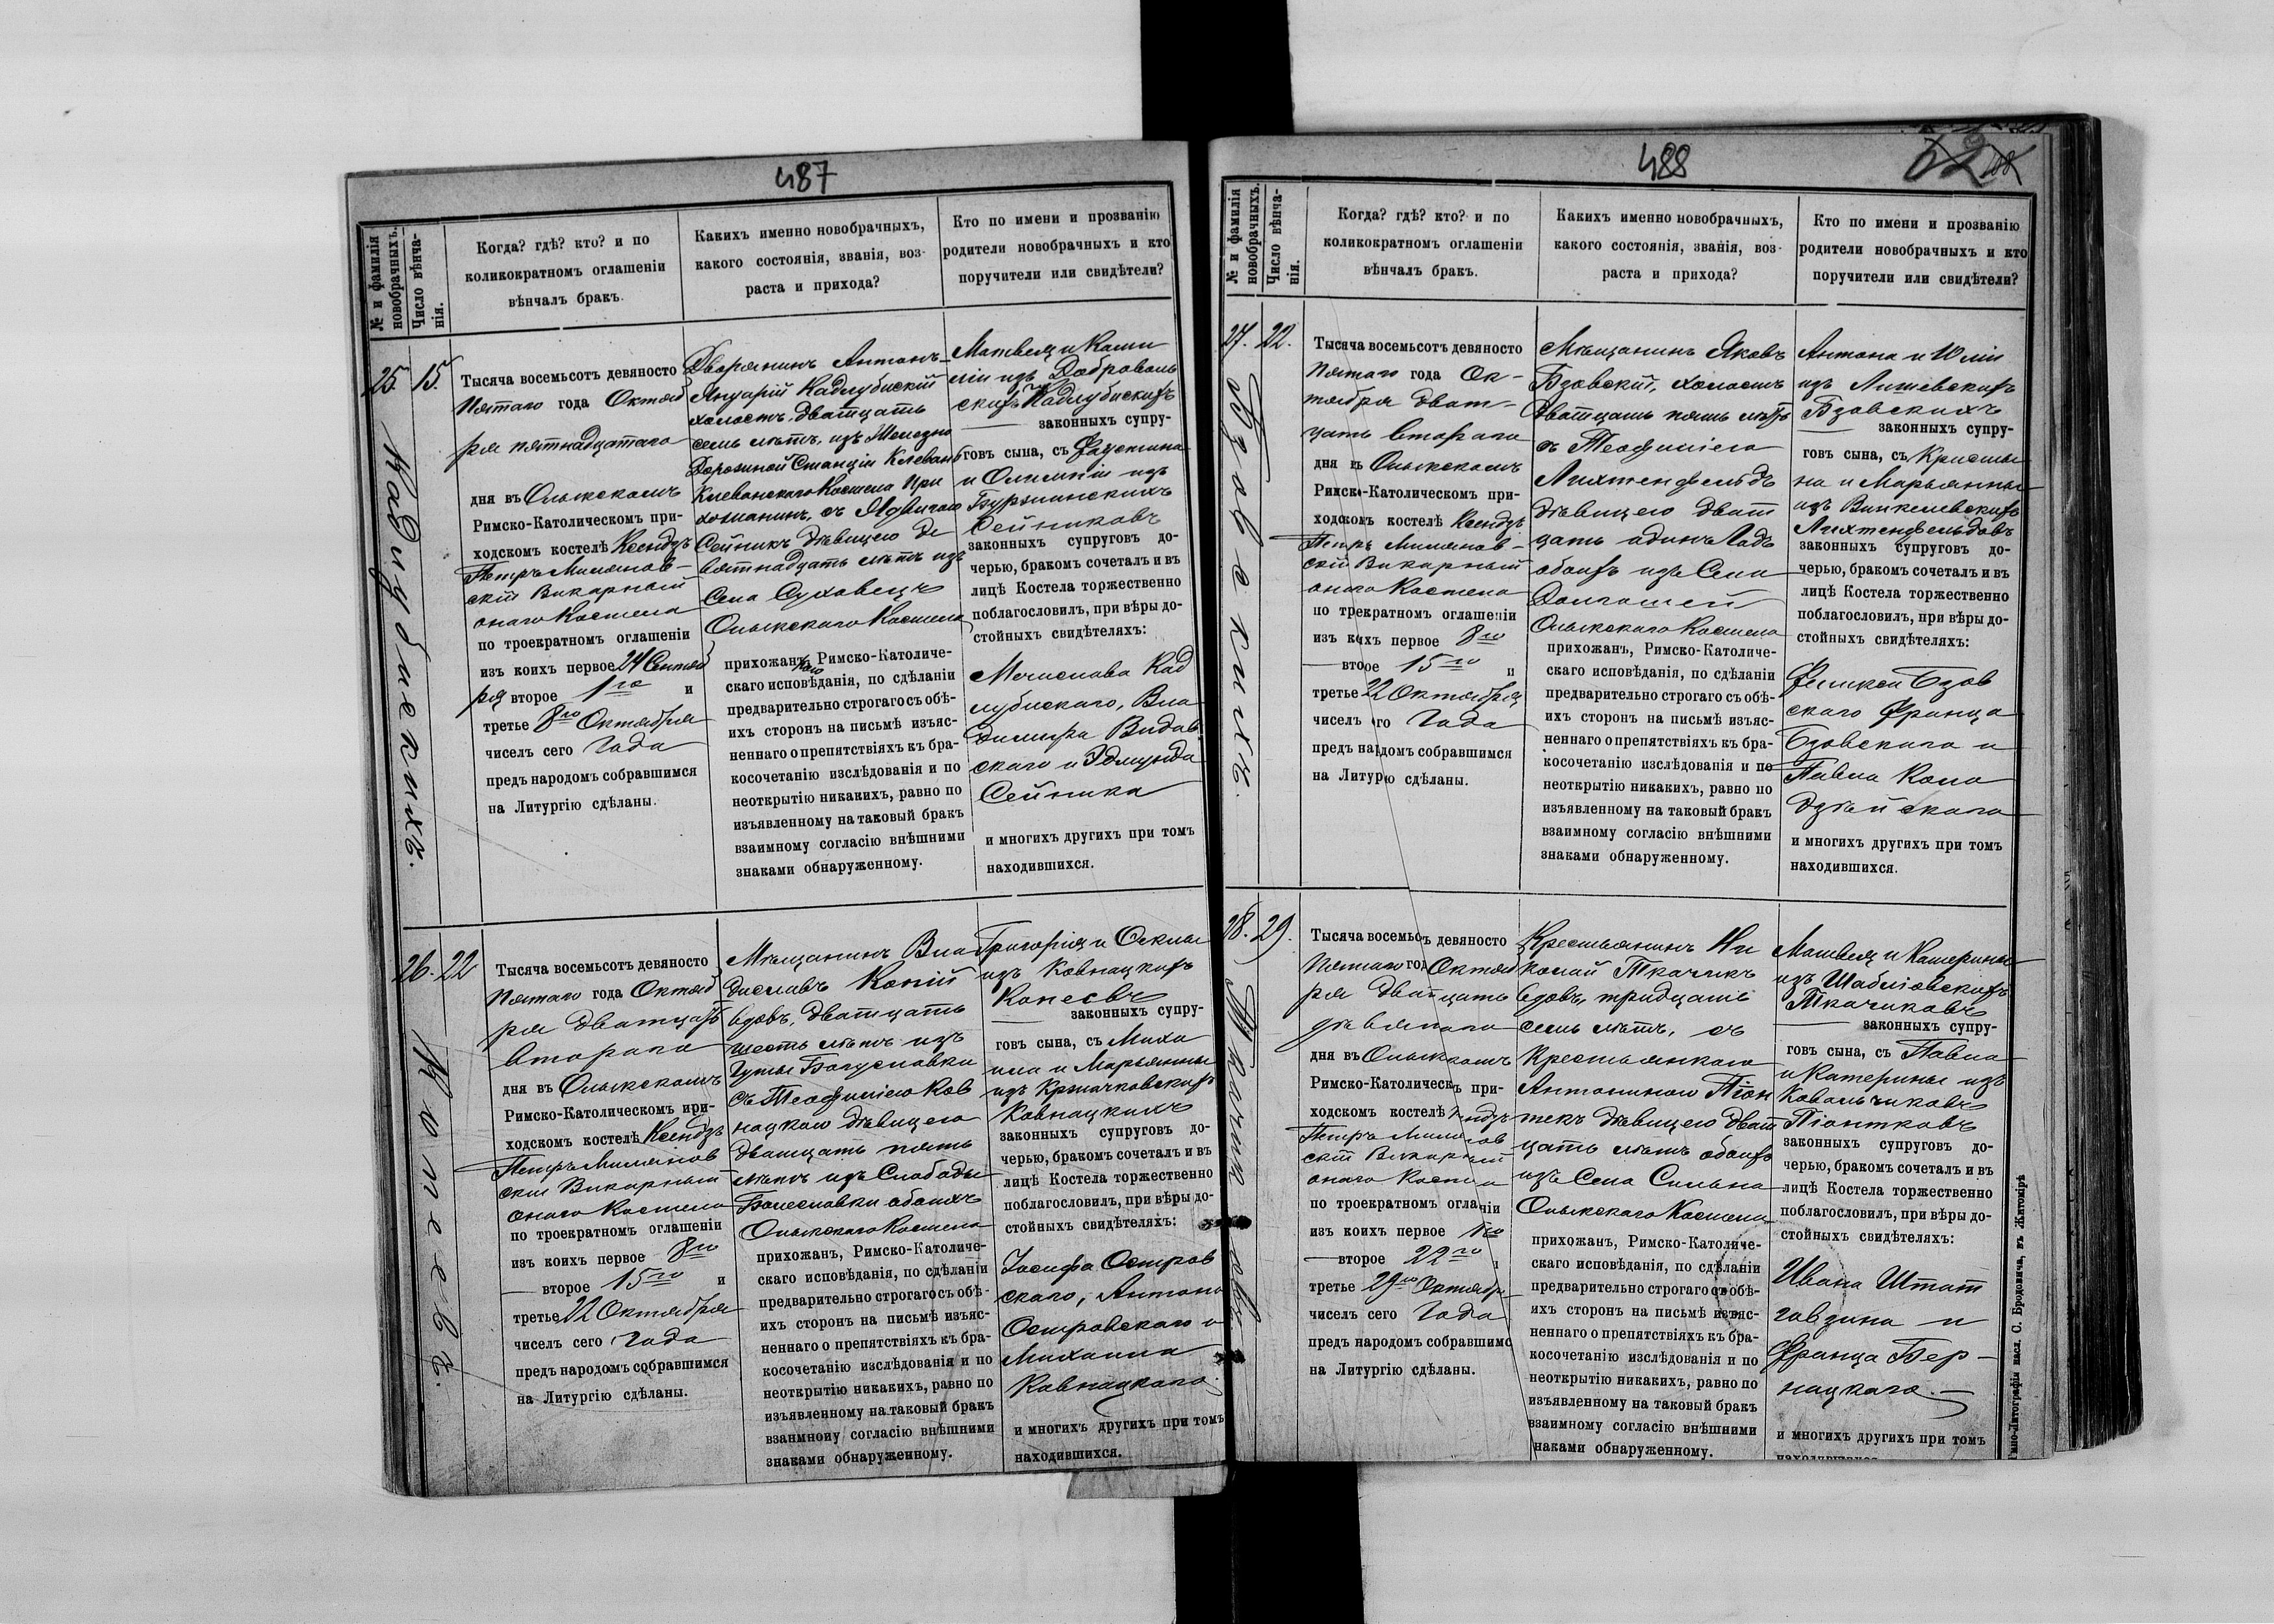 487
№ и фамилія
новобрачныхъ.
Число вѣнча-
нія.
Когда? гдѣ? кто? и по
коликократномъ оглашеніи
вѣнчалъ бракъ.
Какихъ именно новобрачныхъ,
какого состоянія, званія, воз-
раста и прихода?
Кто по имени и прозванію
родители новобрачныхъ и кто
поручители или свидѣтели?
25.
Кадлубискихъ.
15.
Тысяча восемьсотъ девяносто
Пятаго года Октяб
ря пятнадцатаго
дня въ Олыкскомъ
Римско-Католическомъ при-
ходскомъ костелѣ Ксендзъ
Петръ Милянов-
скій Викарный
онаго Костела
по троекратномъ оглашеніи
изъ коихъ первое 24 Сентяб
ря второе 1го и
третье 8го Октября
чиселъ сего Года
предъ народомъ собравшимся
на Литургію сдѣланы.
Дворянинъ Антонъ-
Януарій Кадлубискій
холостъ двадцать
семь лѣтъ, изъ Железно
Дорожной Станціи Клевань
Клеванскаго Костела При
хожанинъ, съ Ядвигою
Сейникъ дѣвицею де
вятнадцать лѣтъ изъ
Села Суховецъ
Олыкскаго Костела
прихожанкою Римско-Католиче-
скаго исповѣданія, по сдѣланіи
предварительно строгаго съ обѣ-
ихъ сторонъ на письмѣ изъяс-
неннаго о препятствіяхъ къ бра-
косочетанію изслѣдованія и по
неоткрытію никакихъ, равно по
изъявленному на таковый бракъ
взаимному согласію внѣшними
знаками обнаруженному.
Матвея и Камил
ліи изъ Доброволь
скихъ Кадлубискихъ
законныхъ супру-
говъ сына, съ Фаустина
и Олимпіи изъ
Буржинскихъ
Сейниковъ
законныхъ супруговъ до-
черью, бракомъ сочеталъ и въ
лицѣ Костела торжественно
поблагословилъ, при вѣры до-
стойныхъ свидѣтеляхъ:
Мечислава Кад
лубискаго, Вла
диміра Видав
скаго и Эдмунда
Сейника
и многихъ другихъ при томъ
находившихся.
26.
Копіевъ.
22
Тысяча восемьсотъ девяносто
Пятаго года Октяб
ря двадцать
втораго
дня въ Олыкскомъ
Римско-Католическомъ при-
ходскомъ костелѣ Ксендзъ
Петръ Милянов
скій Викарный
онаго Костела
по троекратномъ оглашеніи
изъ коихъ первое 8го
второе 15го и
третье 22 Октября
чиселъ сего Года
предъ народомъ собравшимся
на Литургію сдѣланы.
Мѣщанинъ Вла
диславъ Копій
вдовъ, двадцать
шесть лѣтъ изъ
Гуты Богуславки
съ Теофилiею Ков
нацкою дѣвицею
двадцать пять
лѣтъ изъ Слободы
Болеславки обоихъ
Олыкскаго Костела
прихожанъ, Римско-Католиче-
скаго исповѣданія, по сдѣланіи
предварительно строгаго съ обѣ-
ихъ сторонъ на письмѣ изъяс-
неннаго о препятствіяхъ къ бра-
косочетанію изслѣдованія и по
неоткрытію никакихъ, равно по
изъявленному на таковый бракъ
взаимному согласію внѣшними
знаками обнаруженному.
Григорія и Феклы
изъ Ковнацкихъ
Копіевъ
законныхъ супру-
говъ сына, съ Миха
ила и Марьянны
изъ Кржачковскихъ
Ковнацкихъ
законныхъ супруговъ до-
черью, бракомъ сочеталъ и въ
лицѣ Костела торжественно
поблагословилъ, при вѣры до-
стойныхъ свидѣтеляхъ:
Іосифа Остров
скаго, Антона
Островскаго и
Михаила
Ковнацкаго.
и многихъ другихъ при томъ
находившихся.
488
№ и фамилія
новобрачныхъ.
Число вѣнча-
нія.
Когда? гдѣ? кто? и по
коликократномъ оглашеніи
вѣнчалъ бракъ.
Какихъ именно новобрачныхъ,
какого состоянія, званія, воз-
раста и прихода?
Кто по имени и прозванію
родители новобрачныхъ и кто
поручители или свидѣтели?
27.
Бзовскихъ.
22.
Тысяча восемьсотъ девяносто
Пятаго года Ок-
тября двад-
цать втораго
дня въ Олыкскомъ
Римско-Католическомъ при-
ходскомъ костелѣ Ксендзъ
Петръ Милянов-
скій Викарный
онаго Костела
по трекратномъ оглашеніи
изъ кихъ первое 8го
второе 15го и
третье 22 Октября
чиселъ его Года
предъ надомъ собравшимся
на Литурю сдѣланы.
Мѣщанинъ Яковъ
Бзовскій, холостъ
двадцать пять лѣтъ
съ Теофилiею
Лихтенфельдъ
дѣвицею двад
цать одинъ Годъ
обоихъ изъ Села
Долгошей
Олыкскаго Костела
прихожанъ, Римско-Католиче-
скаго исповѣданія, по сдѣланіи
предварительно строгаго съ обѣ-
ихъ сторонъ на письмѣ изъяс-
неннаго о препятствіяхъ къ бра-
косочетанію изслѣдованія и по
неоткрытію никакихъ, равно по
изъявленному на таковый бракъ
взаимному согласію внѣшними
знаками обнаруженному.
Антона и Юліи
изъ Лишевскихъ
Бзовскихъ
законныхъ супру-
говъ сына, съ Кристья
на и Марьянны
изъ Винкелевскихъ
Лихтенфельдовъ
законныхъ супруговъ до-
черью, бракомъ сочеталъ и въ
лицѣ Костела торжественно
поблагословилъ, при вѣры до-
стойныхъ свидѣтеляхъ:
Феликса Бзов
скаго Франца
Бзовскаго и
Павла Коло
дзѣйскаго
и многихъ другихъ при томъ
находившихся.
28.
Ткачиковъ
29.
Тысяча восемьсъ девяносто
Пятаго год Октяб
ря двадцать
девятаго
дня въ Олыкскомъ
Римско-Католическъ при-
ходскомъ костелѣ Ксендзъ
Петръ Милянов
скій Викарный
онаго Костела
по троекратномъ оглаеніи
изъ коихъ первое 15го
второе 22го
третье 29го Октября
чиселъ сего Года
предъ народомъ собравшимс
на Литургію сдѣланы.
Крестьянинъ Ни
колай Ткачикъ
вдовъ, тридцать
семь лѣтъ, съ
Крестьянкою
Антониною Піон
текъ дѣвицею двад
цать лѣтъ обоихъ
изъ Села Сильна
Олыкскаго Костела
прихожанъ, Римско-Католиче-
скаго исповѣданія, по сдѣланіи
предварительно строгаго съ обѣ-
ихъ сторонъ на письмѣ изъяс-
неннаго о препятствіяхъ къ бра-
косочетанію изслѣдованія и по
неоткрытію никакихъ, равно по
изъявленному на таковый бракъ
взаимному согласію внѣшними
знаками обнаруженному.
Матвея и Катерины
изъ Шабліовскихъ
Ткачиковъ
законныхъ супру-
говъ сына, съ Павла
и Катерины изъ
Ковальчиковъ
Піонтковъ
законныхъ супруговъ до-
черью, бракомъ сочеталъ и въ
лицѣ Костела торжественно
поблагословилъ, при вѣры до-
стойныхъ свидѣтеляхъ:
Ивана Штат
и
Франца Бер-
нацкаго.
и многихъ другихъ при томъ
С. Бродовича, въ Житомірѣ